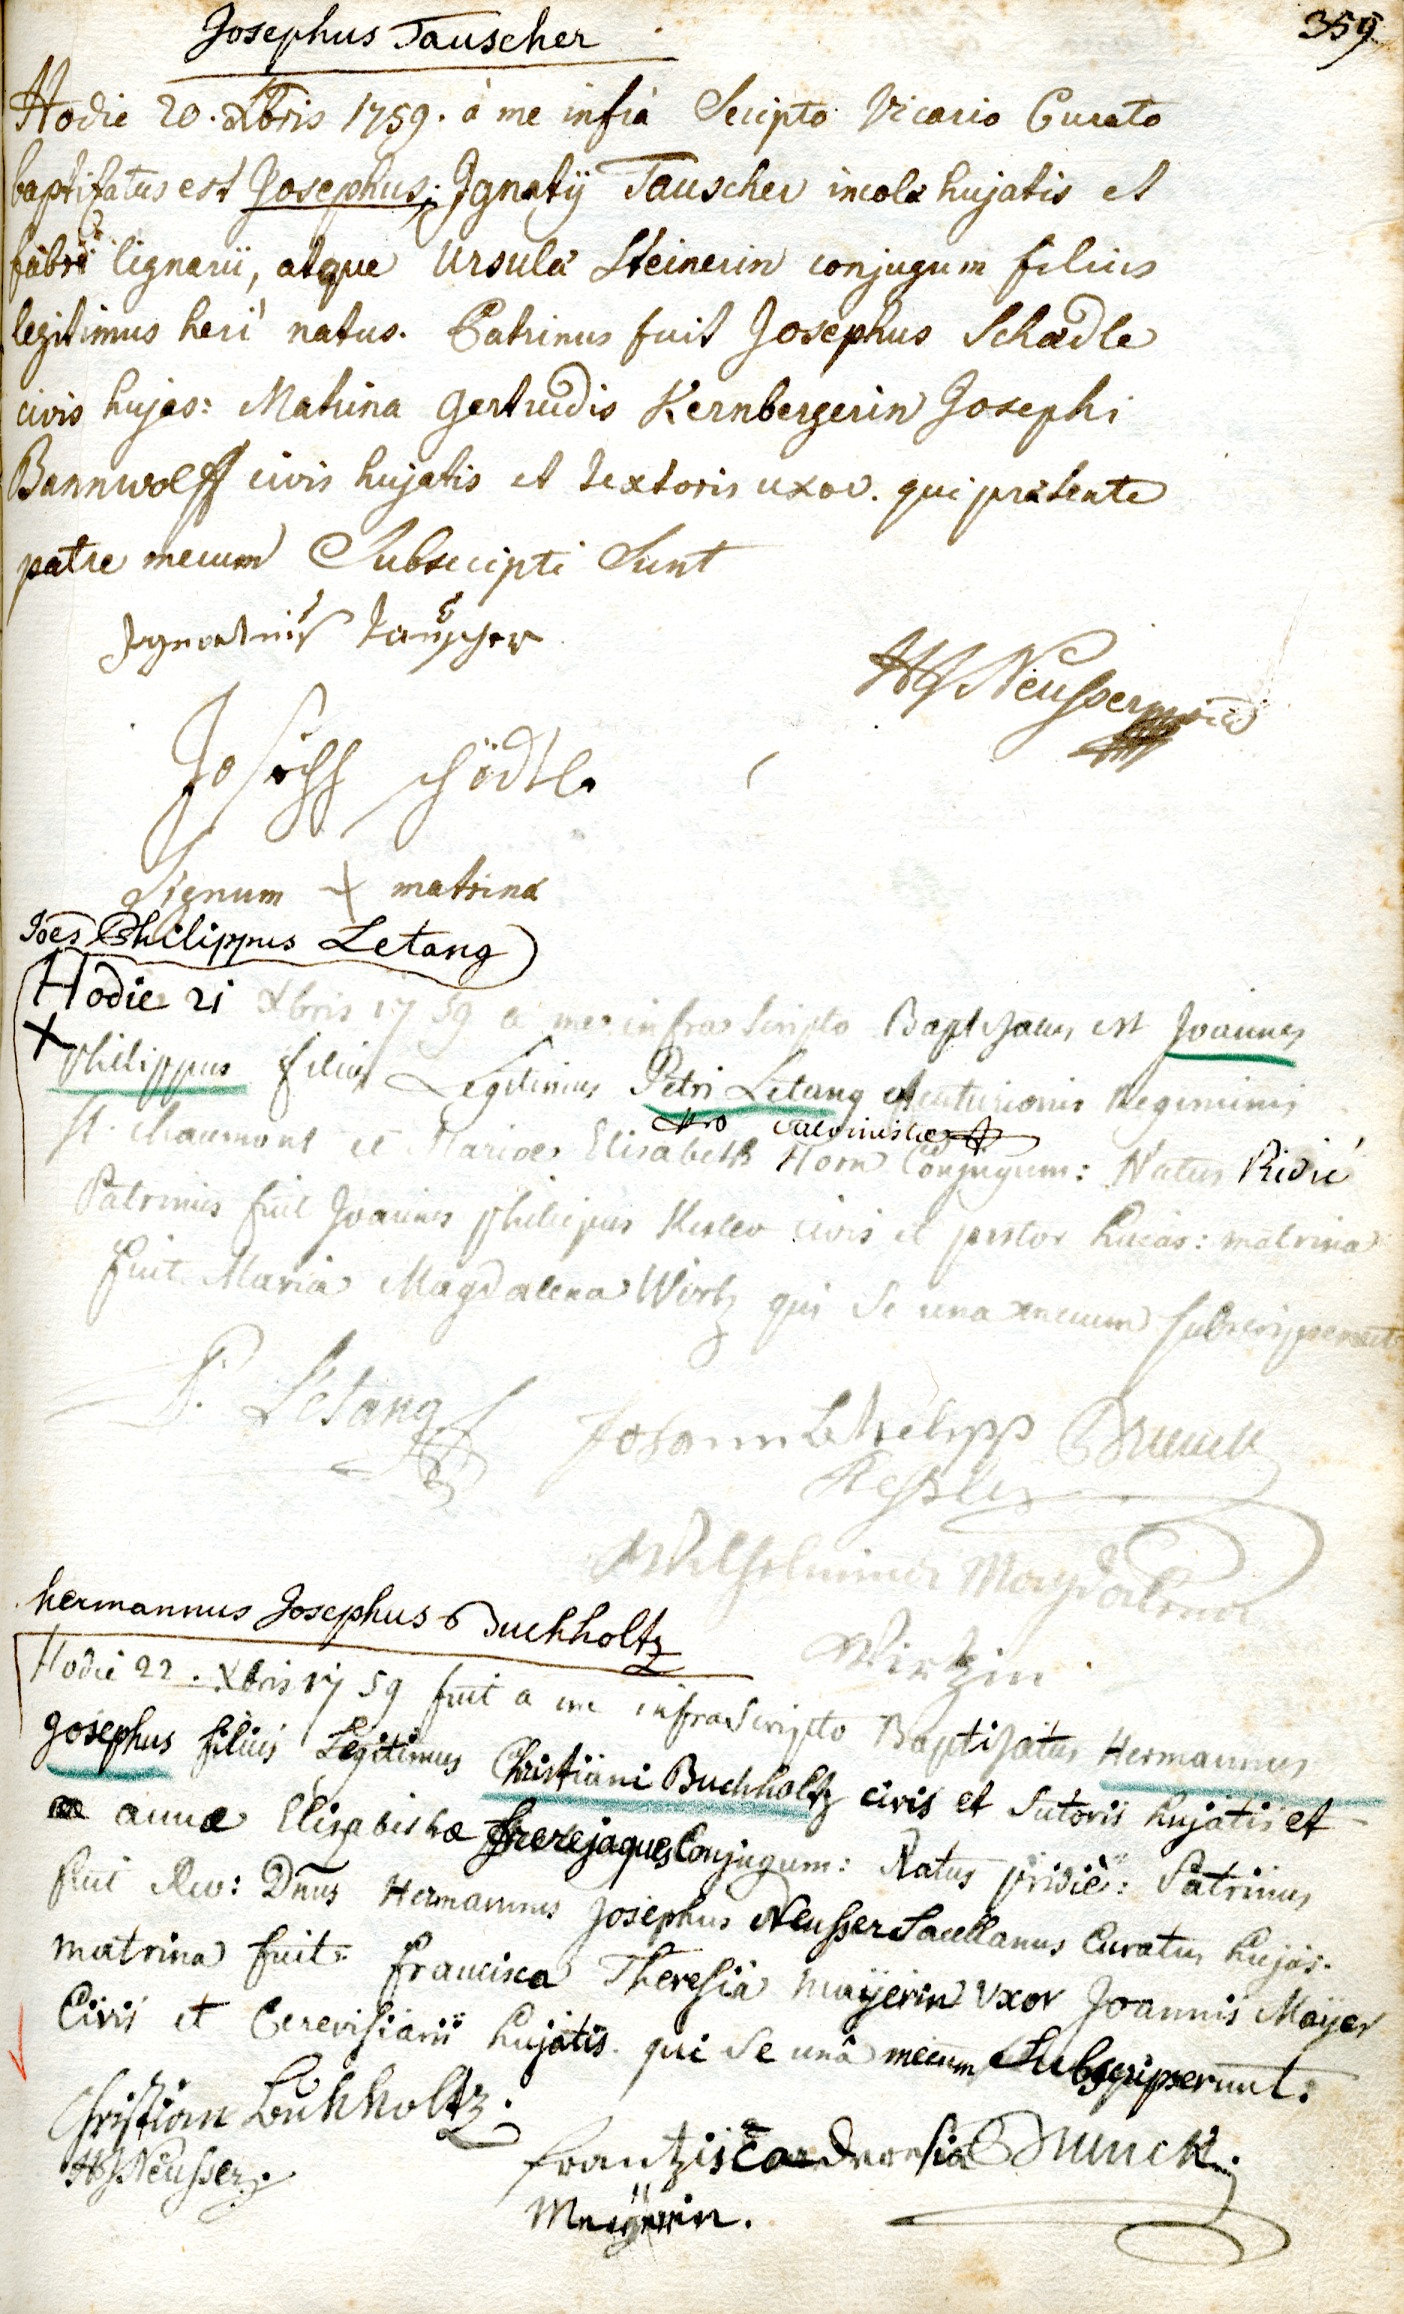 359
Josephus Tauscher
Hodie 20. Xbris 1759. à me infrà Scripto Vicario Curato
baptisatus est Josephus; Ignatÿ Tauscher incolæ hujatis et
fabri lignarii, atque Ursulæ Steinerin conjugum filius
legitimus heri natus. Patrinus fuit Josephus Schædle
civis hujas: Matrina Gertrudis Kernbergerin Josephi
Bannwolff civis hujatis et textoris uxor. qui præsente
patre mecum Subscripti Sunt
Ignatius Tauscher
HJ Neusser
Joseph schödle
Signum + matrinæ
Joes Philippus Letang
Hodie 21 Xbris 1759 a me infra Scripto Baptisatus est Joannes
X
Philippus filius Legitimus Petri Letang Centurionis Regiminis
Calvinistæ
St. Chaumont et Mariæ Elisabeth Horn Conjugum: Natus Pridie
Patrinus fuit Joannes Philippus Kesler civis et pistor hujas: matrina
fuit Maria Magdalena Wirtz qui se una mecum subscripserunt
P. Letang
Johann Philipp Brunck
Kessler
Wilhelmina Magdalena
Wirtzin
hermannus Josephus Buchholtz
Hodie 22. Xbris 1759 fuit a me infraScripto Baptisatus Hermannus
Josephus filius Legitimus Christiani Buchholtz civis et Sutoris hujatis et
annæ Elisabethæ frerejaques Conjugum: Natus pridie: Patrinus
fuit Rev: Dnus Hermannus Josephus Neusser Sacellanus Curatus hujas.
matrina fuit: francisca Theresia Mayerin Uxor Joannis Mayer
Civis et Cerevisiarii hujatis. qui se unâ mecum Subscripserunt.
Christian Buchholtz.
HJ Neusser.
frantzisca Deresia Brunck
Mayerin.